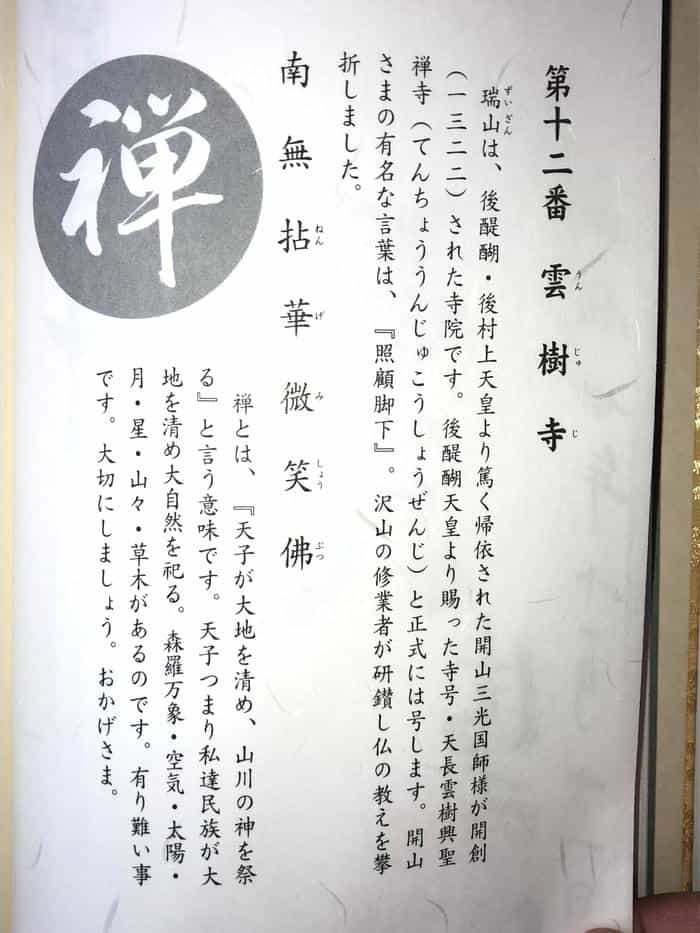 第十二番　雲樹寺
うんじゅじ
瑞山は、後醍醐・後村上天皇より篤く帰依された開山三光国師様が開創
ずいざん
（一三二二）された寺院です。後醍醐天皇より賜った寺号・天長雲樹興聖
禅寺（てんちょううんじゅこうしょうぜんじ）と正式には号します。開山
さまの有名な言葉は、『照顧脚下』。沢山の修業者が研鑽し仏の教えを攀
折しました。
南無拈華微笑佛
ねんげみしょうぶつ
禅
禅とは、『天子が大地を清め、山川の神を祭
る』と言う意味です。天子つまり私達民族が大
地を清め大自然を祀る。森羅万象・空気・太陽・
月・星・山々・草木があるのです。有り難い事
です。大切にしましょう。おかげさま。